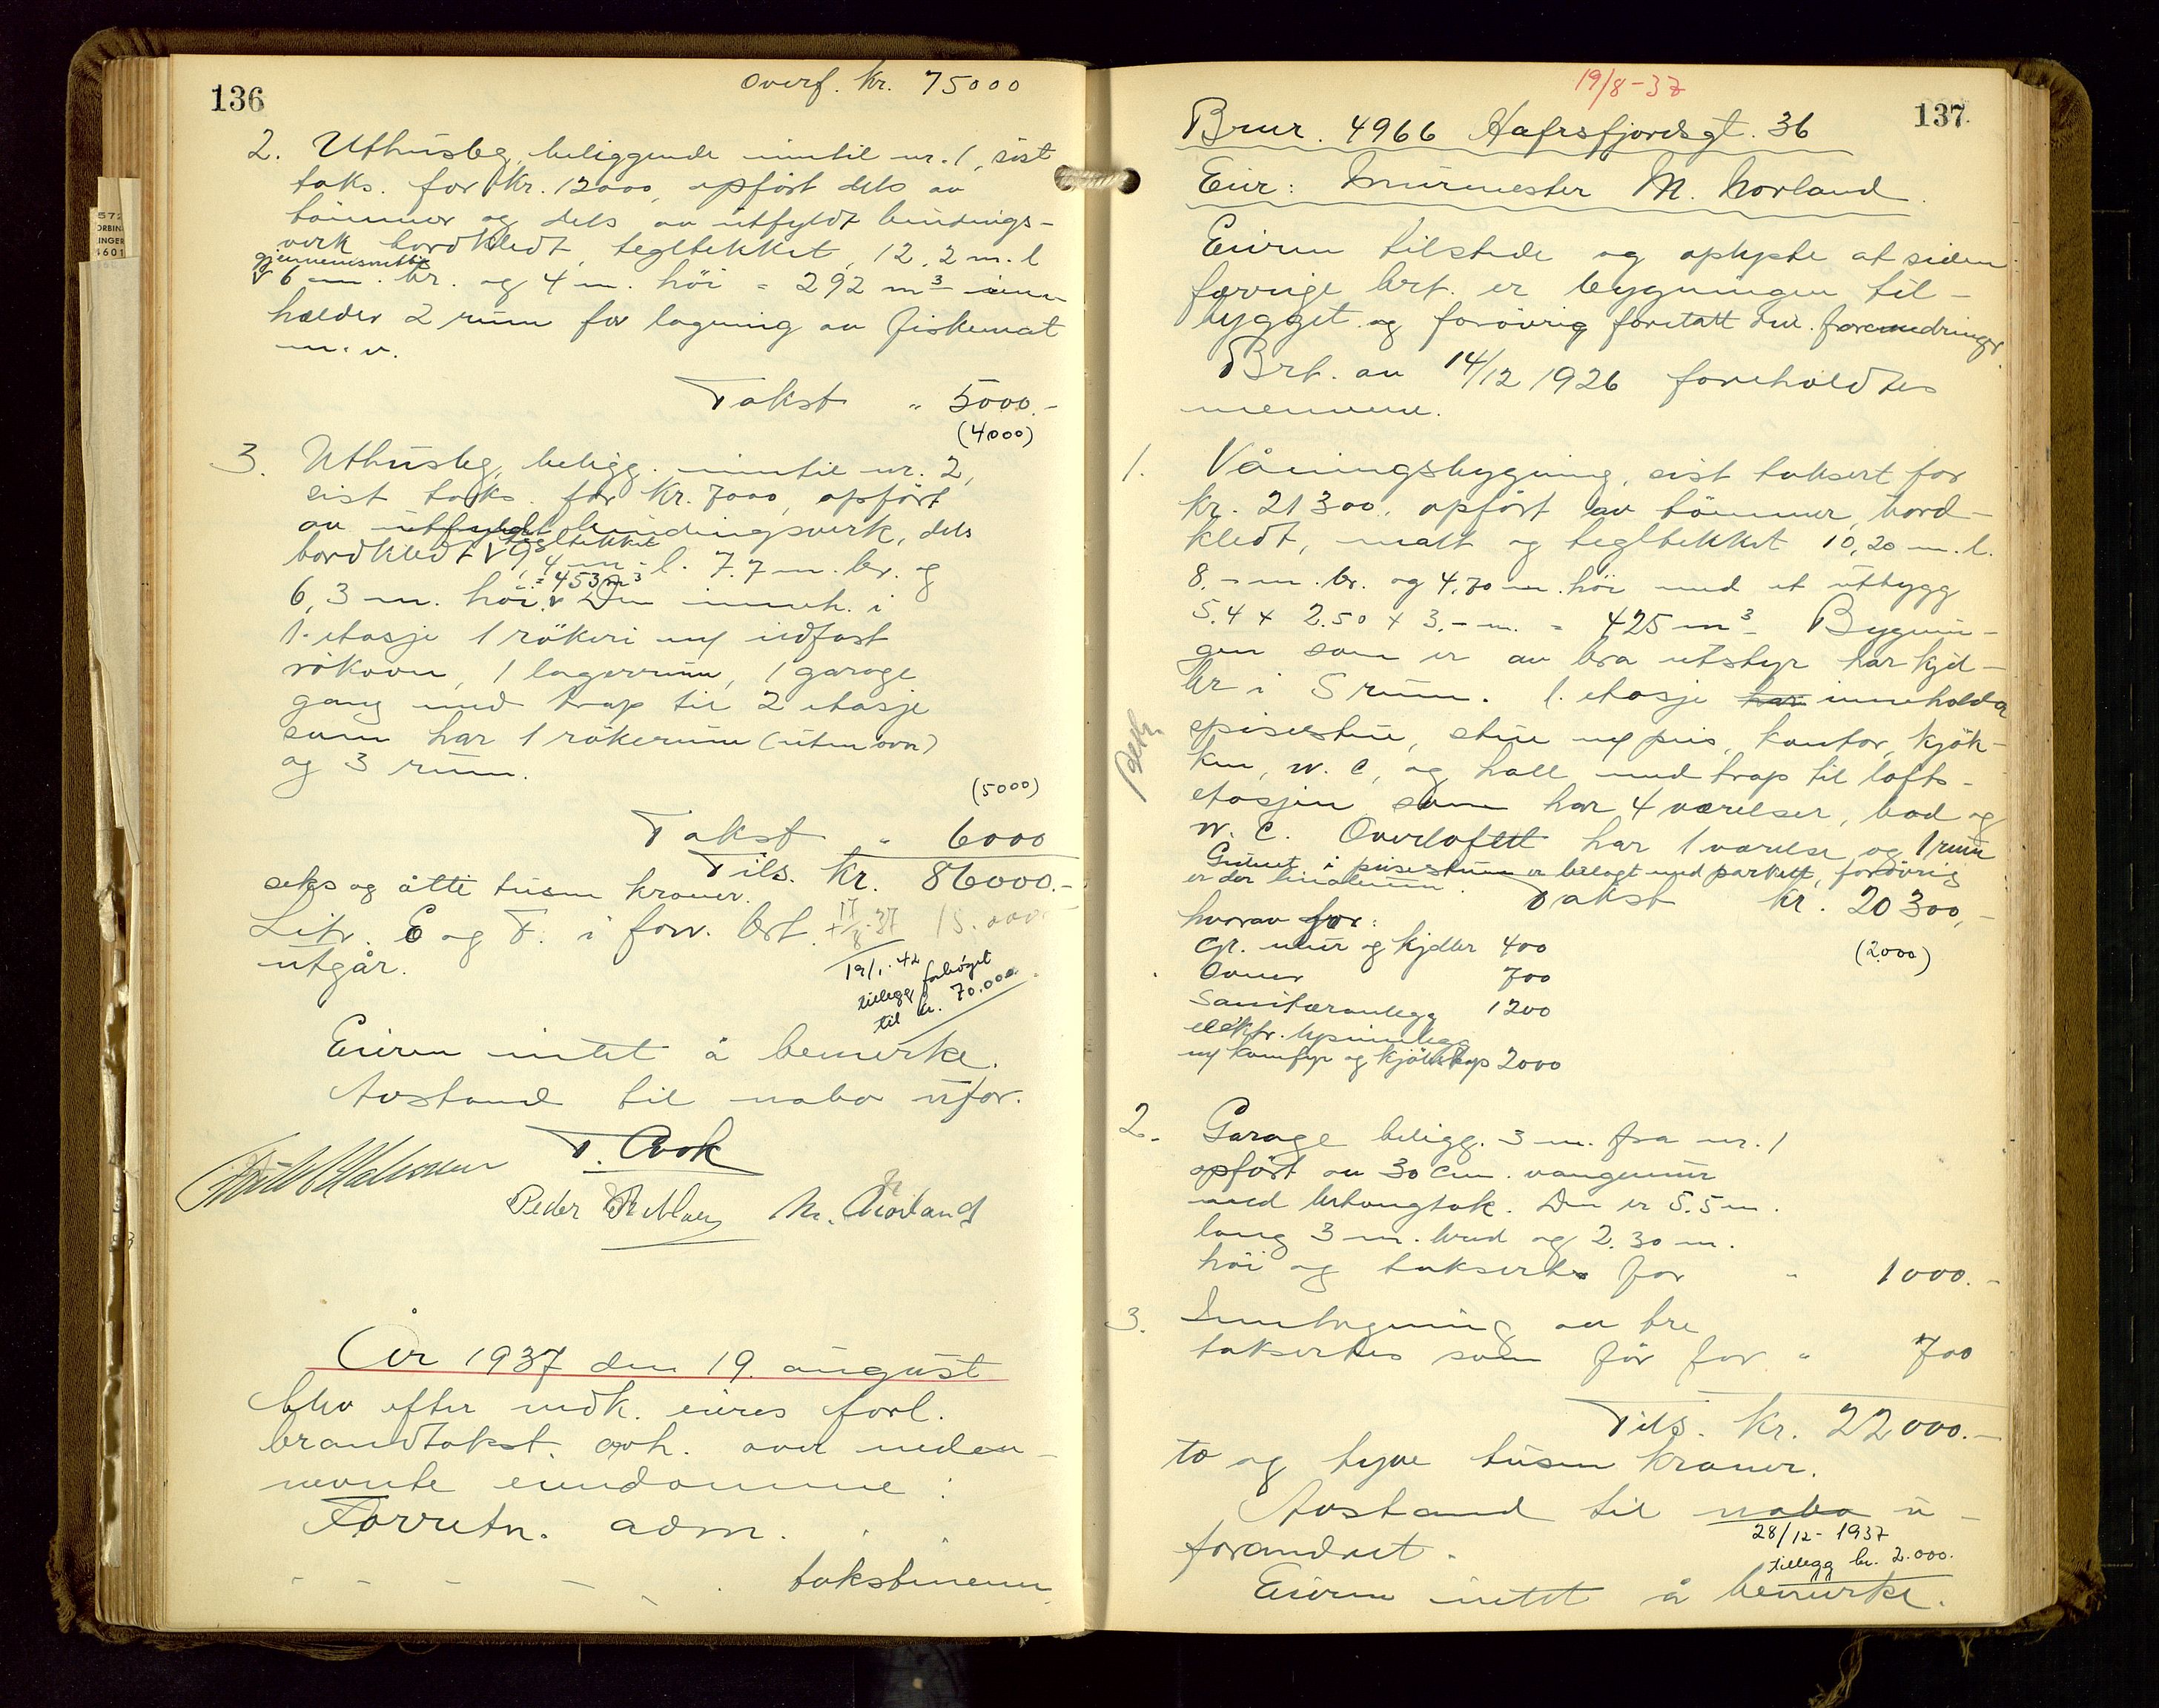 136
Overf. kr. 75000
2. Uthusbyg. beliggende inntil nr. 1, sist
taks. for kr. 12000, opført dels av
tømmer og dels av utfyldt bindings-
verk bordkledt, tegltekket, 12,2 m. l
gjennemsnittlig
6 m. br. og 4 m. høi = 292 m³ inne-
holder 2 rum for lagring av fiskemat
m. v.
Takst " 5000.-
(4000)
3. Uthusbg. beligg. inntil nr. 2,
sist taks. for kr. 7000, opført
av utfyldt bindingsverk, dels
bordkledt tegltekket 9,4 m. l. 7.7 m. br. og
= 453 m³
6,3 m. høi. Den inneh. i
1. etasje 1 rökeri m/ ildfast
rökovn, 1 lagerrum, 1 garage
gang med trap til 2 etasje
som har 1 rökerum (uten ovn)
og 3 rum.
(5000)
Takst " 6000
Tils. kr. 86000.-
seks og åtti tusen kroner.
Litr. E og F. i forr. brt. + 17/8-37 15.000
utgår.
19/1.42
tillegg forhøyet
til kr. 70.000.
Eieren intet å bemerke.
Avstand til nabo ufor.
T. Cook
Peder M. Norland
År 1937 den 19. august
blev efter medh. eieres forl.
brandtakst avh. over neden-
nevnte eiendomme:
Forretn. adm.
- - - - - . takstmenn.
137
19/8-37
Brnr. 4966 Hafrsfjordsgt. 36
Eier: Murmester M. Norland.
Eieren tilstede og oplyste at siden
forrige brt. er bygningen til-
bygget og forövrig foretatt div. forandringer
Brt. av 14/12 1926 foreholdtes
mennene.
1. Våningsbygning, sist taksert for
kr. 21300, opført av tömmer, bord-
kledt, malt og tegltekket 10,20 m. l.
8.- m. br. og 4,70 m. höi med et utbygg
5.4 x 2.50 x 3.- m. = 425 m³ Bygnin-
gen som er av bra utstyr har kjel-
ler i 5 rum. 1. etasje har inneholder
spisestue, stue m/ peis, kontor, kjök-
ken, W.C. og hall med trap til lofts-
etasjen som har 4 værelser, bad og
W.C. Overloftet har 1 værelse og 1 rum
Gulvet i peisestuen er belagt med parkett, forövrig
er der linoleum.
Takst kr. 20300,-
hvorav for:
(2000)
Gr. mur og kjeller 400
Ovner 700
Sanitæranlegg 1200
elektr. lysinnlegg
m/ komfyr og kjöleskap 2000
2. Garage beligg. 3 m. fra nr. 1
opført av 30 cm. vangemur
med betongtak. Den er 5.5 m.
lang 3 m. bred og 2.30 m.
höi og takseres for " 1000.-
3. Inntegning av tre
taksertes som för for " 700
Tils. kr. 22000.-
to og tyve tusen kroner.
Avstand til nabo u-
forandret.
28/12-1937
tillegg kr. 2.000.
Eieren intet å bemerke.